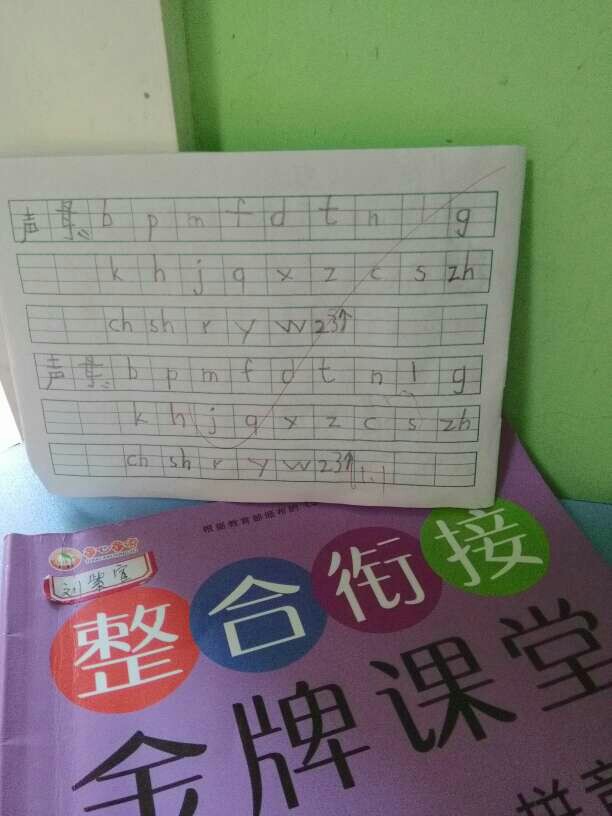 声母: b p m f d t n l g
k h j q x z c s zh
ch sh r y w 23个
声母: b p m f d t n l g
k h j q x z c s zh
ch sh r y w 23个
根据教育部颁布的
整合衔接
金牌课堂
拼音